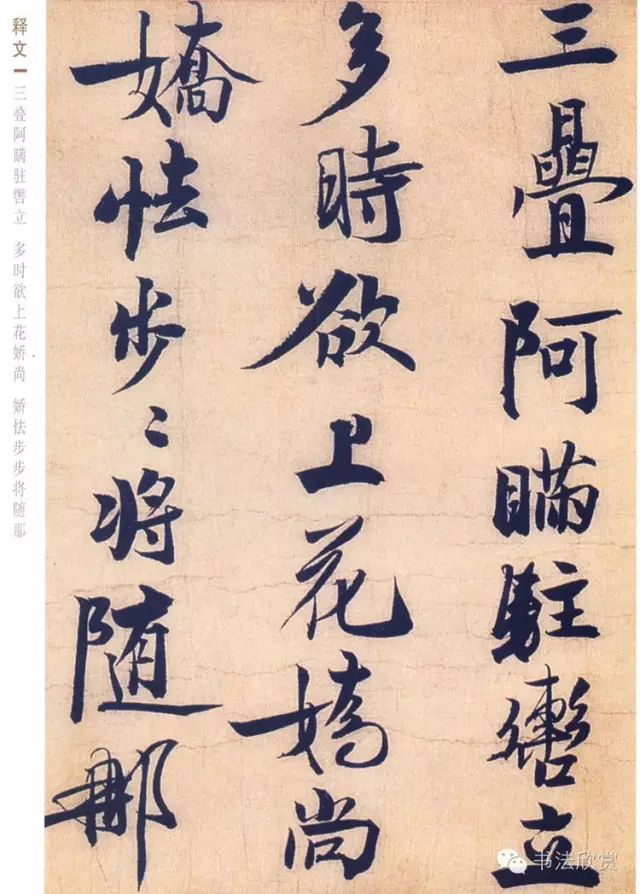 三疊阿瞞駐轡立
多時欲上花嬌尚
嬌怯步〻將随那
释文
三叠阿瞒驻辔立 多时欲上花娇尚 娇怯步步将随那
书法欣赏